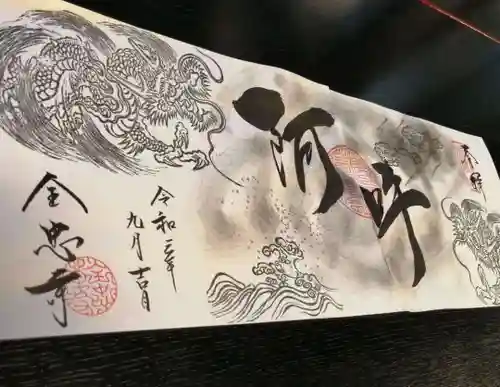 奉拝
阿吽
令和二年
九月吉日
全忠寺